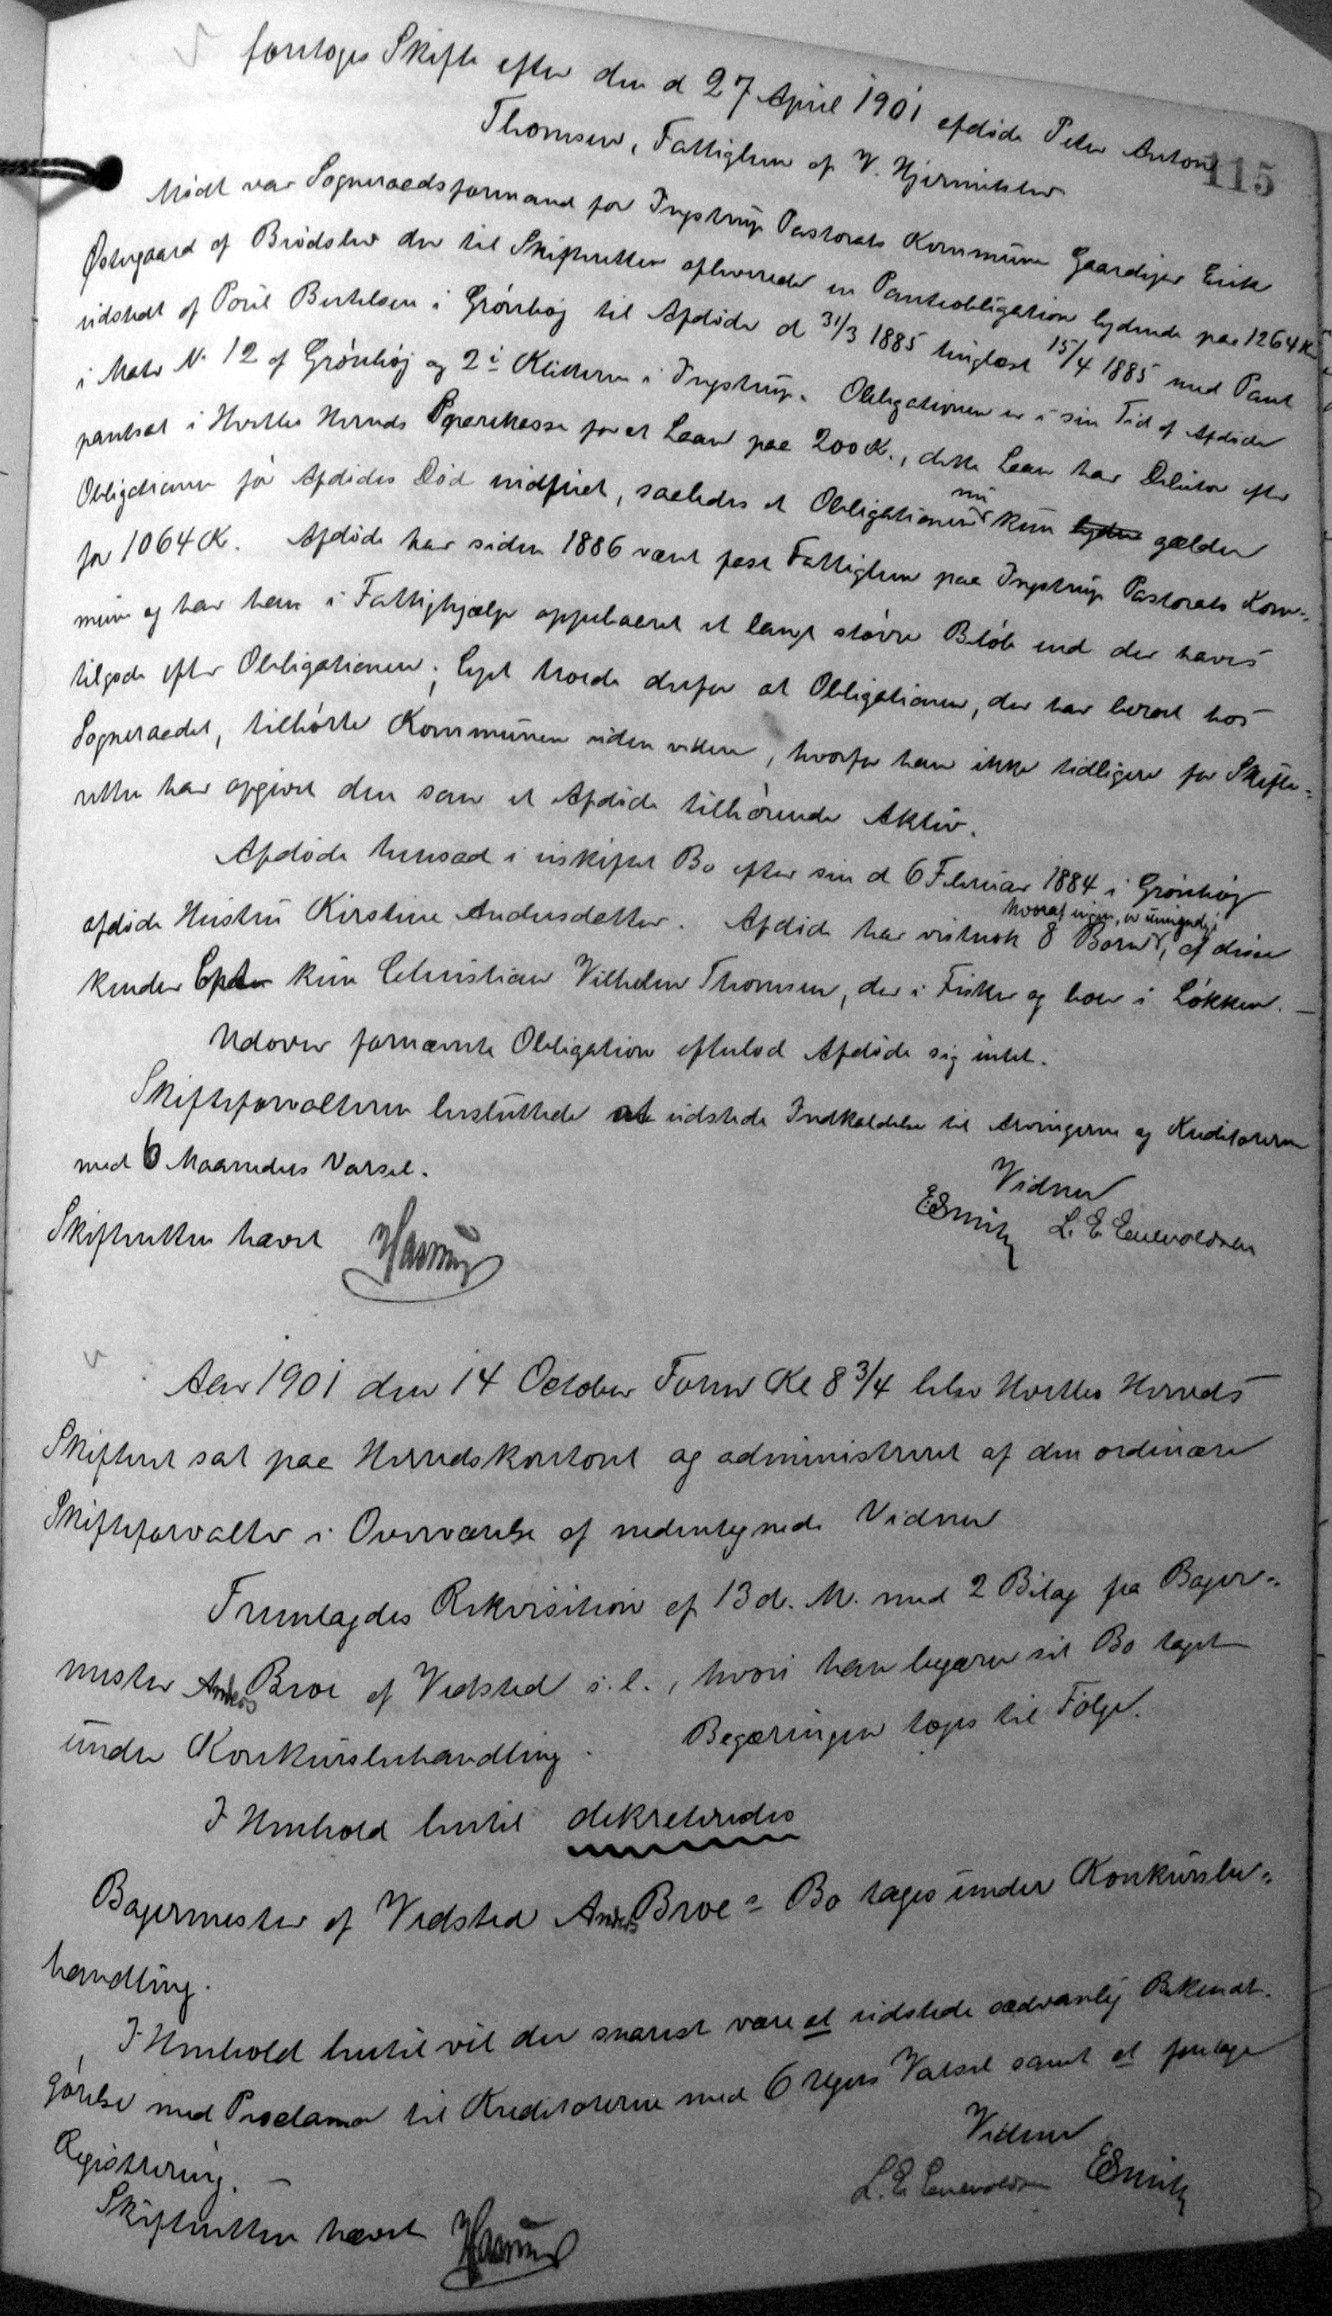 foretoges Skifte efter den d 27 April 1901 afdøde Peter Anton
115
Thomsen, Fattiglem af V. Hjermitslev
Mødt var Sogneraadsformand for Ingstrup Pastorats Kommune Gaardejer Erik
Østergaard af Brødslev der til Skifteretten afleverede en Panteobligation lydende paa 1264 K
udstedt af Poul Bertelsen i Grønhøj til Afdøde d 31/3 1885 tinglæst 15/4 1885 med Pant
i Matr N. 12 af Grønhøj og 2 i Klitterne i Ingstrup. Obligationen er i sin Tid af Afdøde
pantsat i Hvetbo Herreds Sparekasse for et Laan paa 200 K., dette Laan har Debitor efter
Obligationen før Afdødes Død indfriet, saaledes at Obligationen nu kun lyder gælder
for 1064 K. Afdøde har siden 1886 været fast Fattiglem paa Ingstrup Pastorats Kom=
mune og har han i Fattighjælp oppebaaret et langt større Beløb end der haves
tilgode efter Obligationen; Cpt troede derfor at Obligationen, der har beroet hos
Sogneraadet, tilhørte Kommunen uden videre, hvorfor han ikke tidligere for Skifte=
retten har opgivet den som et Afdøde tilhørende Aktiv.
Afdøde hensad i uskiftet Bo efter sin d 6 Februar 1884 i Grønhøj
afdøde Hustru Kirstine Andersdatter. Afdøde har vistnok 8 Børn, hvoraf ingen er umyndige, af disse
kender Cpten kun Christian Vilhelm Thomsen, der er Fisker og boer i Løkken. —
Udover fornævnte Obligation efterlod Afdøde sig intet.
Skifteforvalteren besluttede at udstede Indkaldelse til Arvingerne og Kreditorerne
med 6 Maaneders Varsel.
Vidner
Skifteretten hævet
ESmith L. E. Enevoldsen
Aar 1901 den 14 October Form Kl 8 3/4 blev Hvetbo Herreds
Skifteret sat paa Herredskontoret og administreret af den ordinære
Skifteforvalter i Overværelse af nedentegnede Vidner
Fremlagdes Rekvisition af 13 d. M. med 2 Bilag fra Bager=
mester Anders Broe af Vedsted i. l., hvori han begærer sit Bo taget
under Konkursbehandling. Begæringen toges til Følge.
I Henhold hertil dekreteredes
Bagermester af Vedsted Anders Broe's Bo tages under Konkursbe=
handling.
I Henhold hertil vil der snarest være at udstede sædvanlig Bekendt=
gørelse med Proclama til Kreditorerne med 6 Ugers Varsel samt at foretage
Registrering. —
Vidner
Skifteretten hævet
L. E. Enevoldsen ESmith